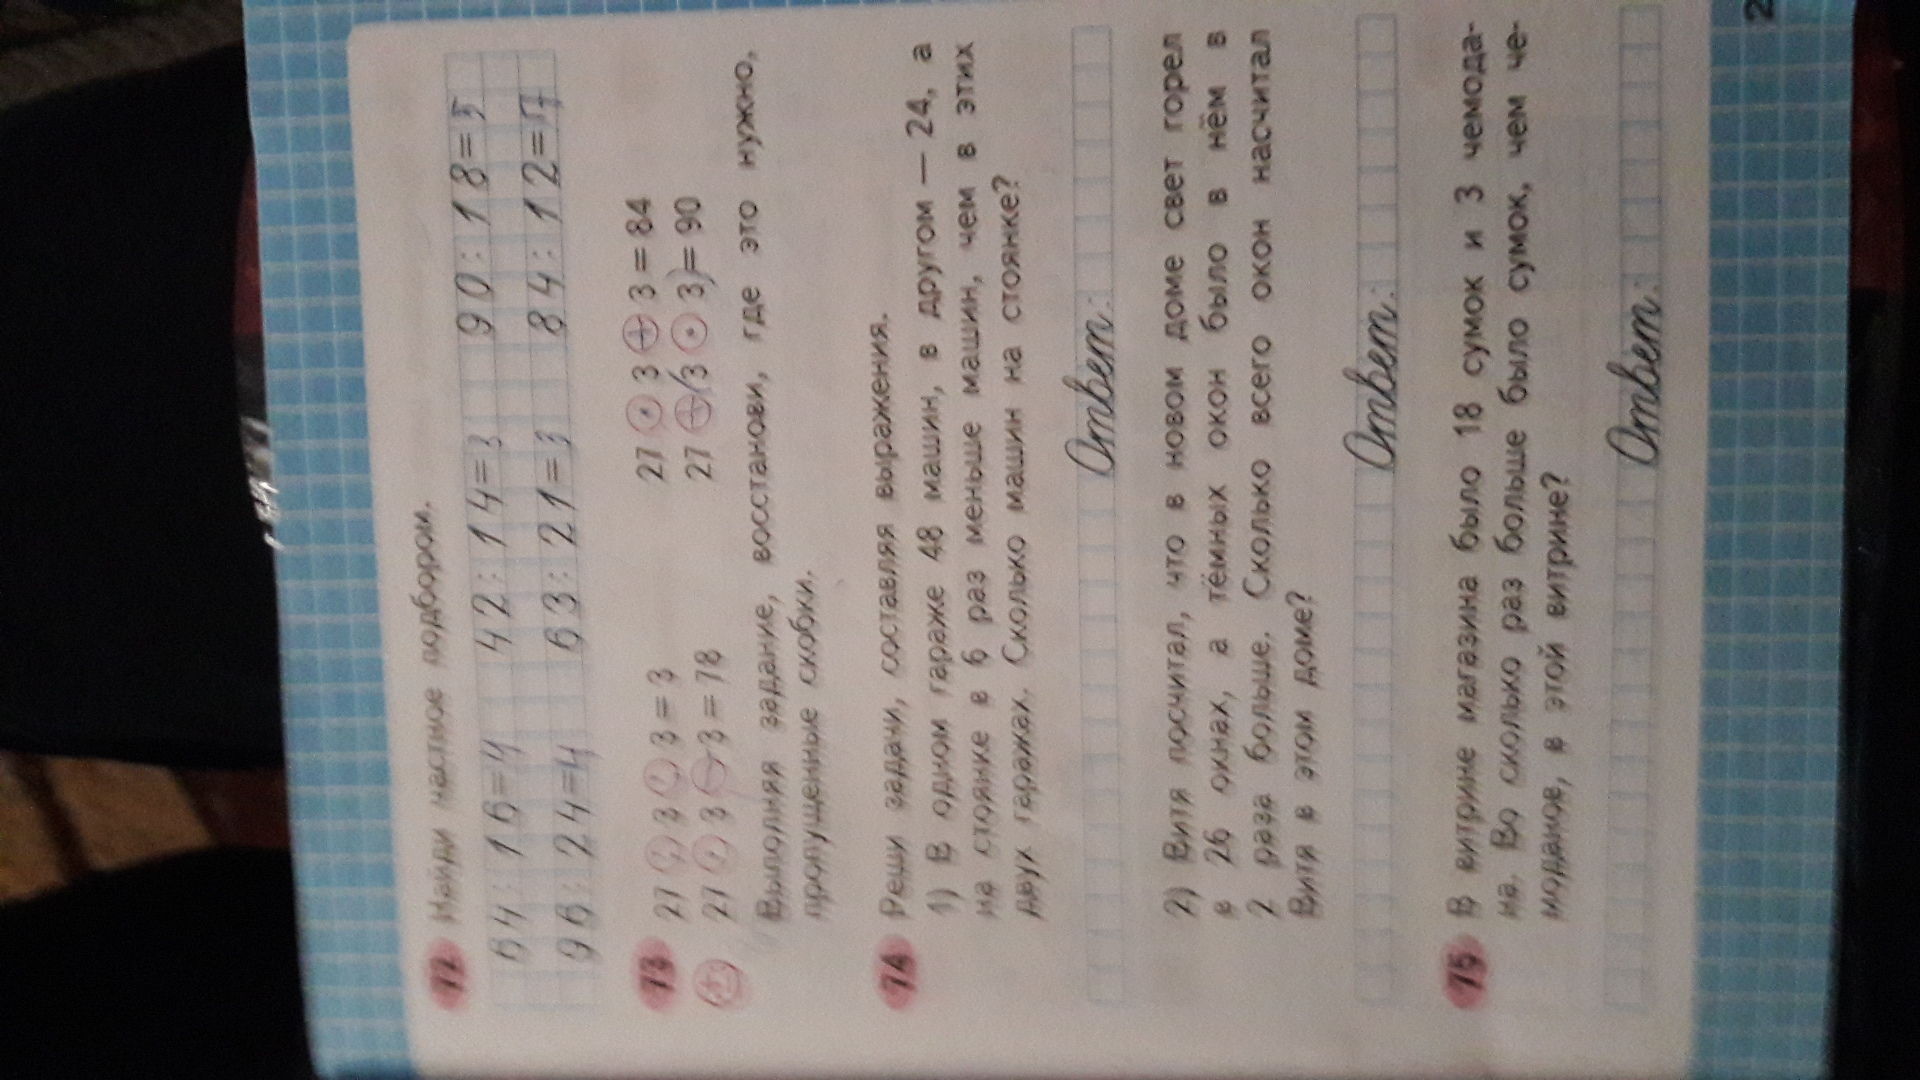 72 Найди частное подбором.
64:16=4 42:14=3 90:18=5
96:24=4 63:21=3 84:12=7
73 27 : 3 : 3 = 3 27 · 3 + 3 = 84
27 · 3 - 3 = 78 27 + (3 · 3) = 90
Выполняя задание, восстанови, где это нужно,
пропущенные скобки.
74 Реши задачи, составляя выражения.
1) В одном гараже 48 машин, в другом — 24, а
на стоянке в 6 раз меньше машин, чем в этих
двух гаражах. Сколько машин на стоянке?
Ответ:
2) Витя посчитал, что в новом доме свет горел
в 26 окнах, а тёмных окон было в нём в
2 раза больше. Сколько всего окон насчитал
Витя в этом доме?
Ответ:
75 В витрине магазина было 18 сумок и 3 чемода-
на. Во сколько раз больше было сумок, чем че-
моданов, в этой витрине?
Ответ:
2